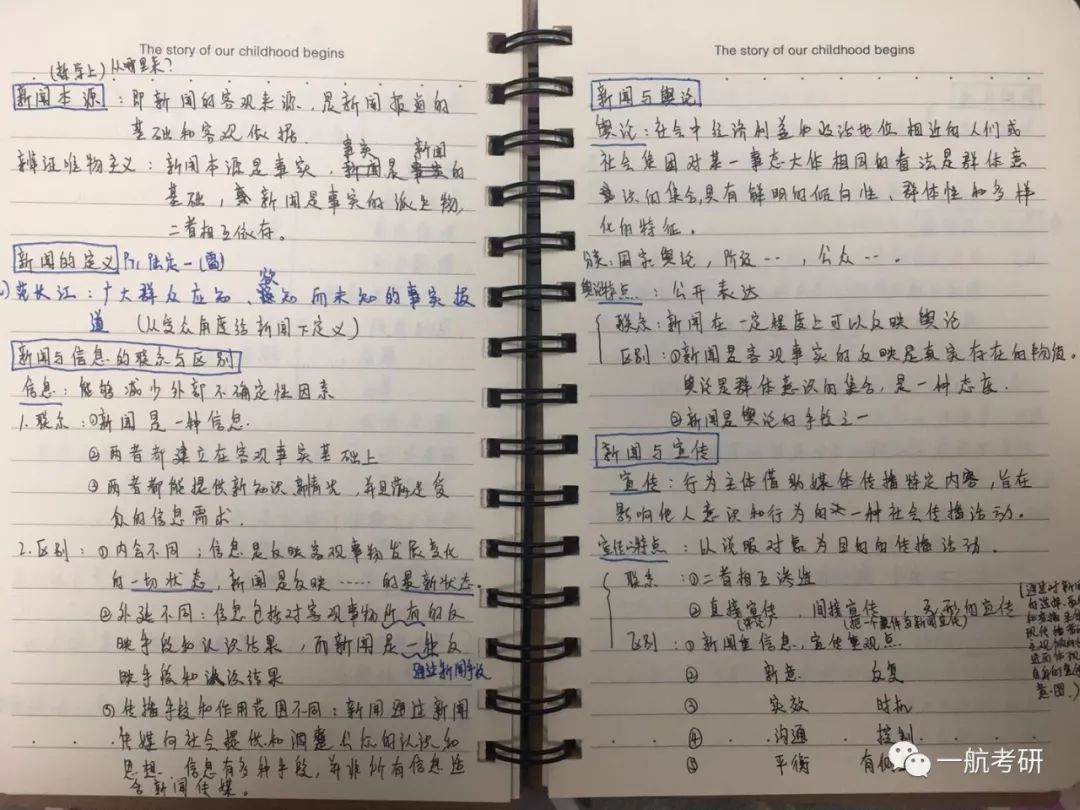 The story of our childhood begins
(哲学上)从哪里来?
新闻本源:即新闻的客观来源,是新闻报道的
基础和客观依据.
辩证唯物主义:新闻本源是事实,事实是新闻的
基础,新闻是事实的派生物,
二者相互依存。
新闻的定义 P11 陆定一(需)
范长江:广大群众应知、欲知而未知的事实报
道 (从受众角度给新闻下定义)
新闻与信息的联系与区别
信息:能够减少外部不确定性因素
1.联系:①新闻是一种信息.
②两者都建立在客观事实基础上
③两者都能提供新知识新情况,并且满足受
众的信息需求.
2.区别:①内含不同;信息是反映客观事物发展变化
的一切状态,新闻是反映……的最新状态。
②外延不同:信息包括对客观事物所有的反
映手段和认识结果,而新闻是一种反
映手段和认识结果 通过新闻手段
③传播手段和作用范围不同:新闻通过新闻
传媒向社会提供和调整公众的认识和
思想.信息有多种手段,并非所有信息适
合新闻传媒。
The story of our childhood begins
新闻与舆论
舆论:社会中经济利益和政治地位相近的人们或
社会集团对某一事态大体相同的看法是群体意
识的集合,具有鲜明的倾向性、群体性和多样
化的特征.
分类:国家舆论,阶级--,公众--.
舆论特点:公开表达
联系:新闻在一定程度上可以反映舆论
区别:①新闻是客观事实的反映是真实存在的物质。
舆论是群体意识的集合,是一种态度.
②新闻是舆论的手段之一
新闻与宣传
宣传:行为主体借助媒体传播特定内容,旨在
影响他人意识和行为的一种社会传播活动。
宣传的特点:以说服对象为目的的传播活动.
联系:①二者相互渗透
②直接宣传 间接宣传 无形的宣传
区别:①新闻重信息,宣传重观点
② 新意 反复
③ 实效 时机
④ 沟通 控制
⑤ 平衡 有
一航考研